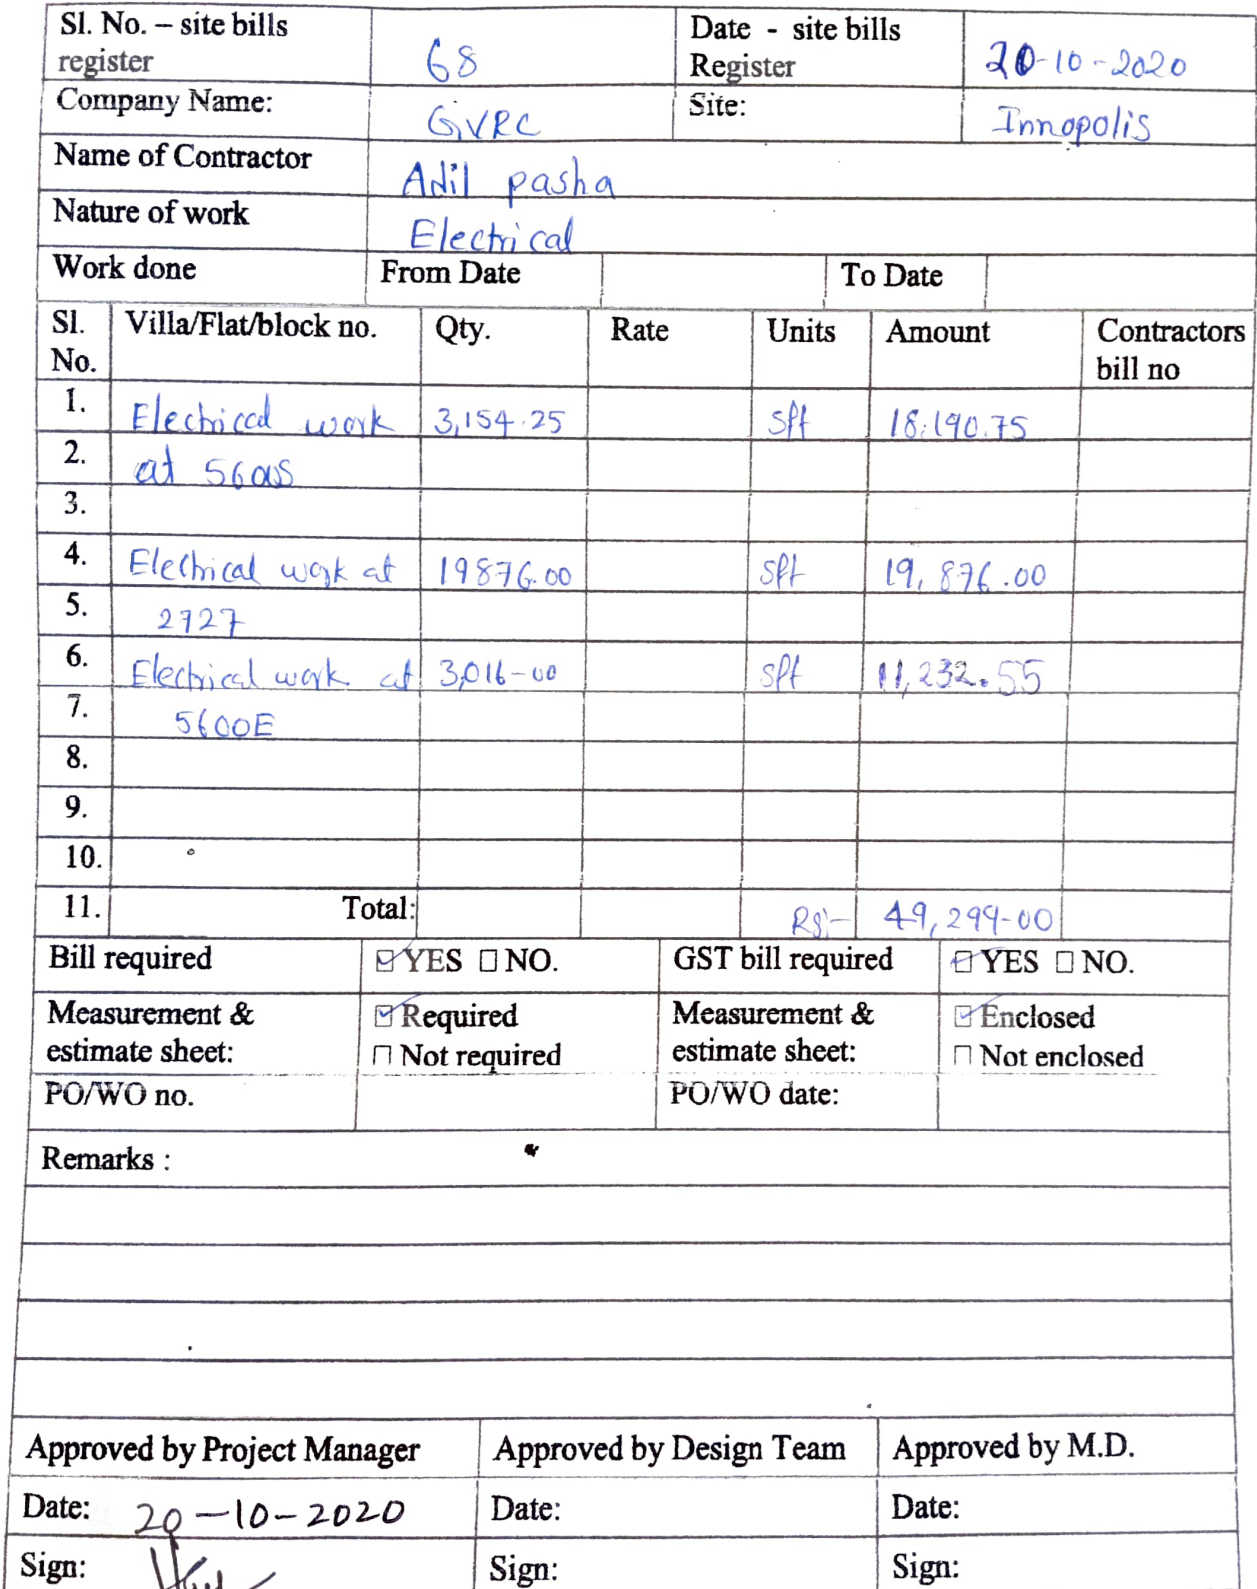 Sl. No. – site bills register 68 Date - site bills Register 20-10-2020
Company Name: GVRC Site: Innopolis
Name of Contractor Adil pasha
Nature of work Electrical
Work done From Date To Date
Sl. No. Villa/Flat/block no. Qty. Rate Units Amount Contractors bill no
1. Electrical work 3,154.25 Sft 18,190.75
2. at 5600S
3.
4. Electrical work at 19876.00 Sft 19,876.00
5. 2727
6. Electrical work at 3,016-00 Sft 11,232.55
7. 5600E
8.
9.
10.
11. Total: Rs:- 49,299-00
Bill required ☑ YES ☐ NO. GST bill required ☑ YES ☐ NO.
Measurement & estimate sheet: ☑ Required ☐ Not required Measurement & estimate sheet: ☑ Enclosed ☐ Not enclosed
PO/WO no. PO/WO date:
Remarks :
Approved by Project Manager Approved by Design Team Approved by M.D.
Date: 20-10-2020 Date: Date:
Sign: Sign: Sign: